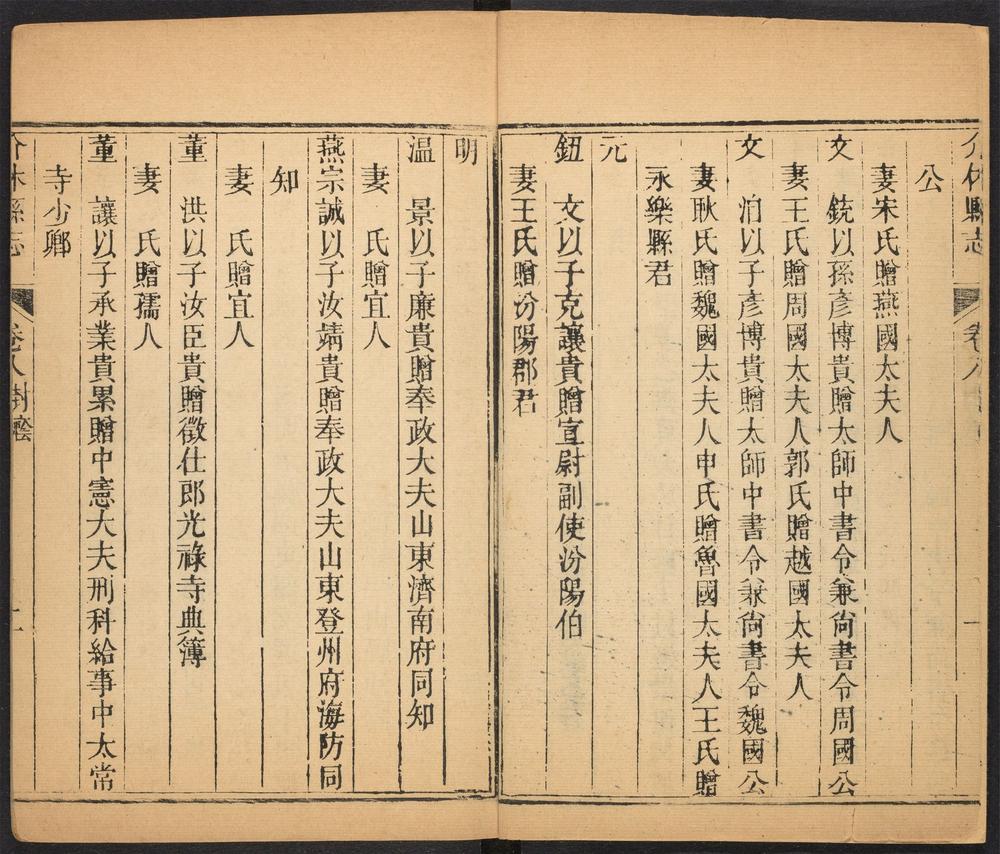 介休縣志 卷八
公
妻宋氏贈燕國太夫人
文 銃以孫彥博貴贈太師中書令兼尙書令周國公
妻王氏贈周國太夫人郭氏贈越國太夫人
文 洎以子彥博貴贈太師中書令兼尙書令魏國公
妻耿氏贈魏國太夫人申氏贈魯國太夫人王氏贈
永樂縣君
元
鈕 文以子克讓貴贈宣尉副使汾陽伯
妻王氏贈汾陽郡君
明
温 景以子廉貴贈奉政大夫山東濟南府同知
妻 氏贈宜人
燕宗誠以子汝靖貴贈奉政大夫山東登州府海防同
知
妻 氏贈宜人
董 洪以子汝臣貴贈徵仕郎光祿寺典簿
妻 氏贈孺人
董 讓以子承業貴累贈中憲大夫刑科給事中太常
寺少卿
介休縣志 卷八封廕